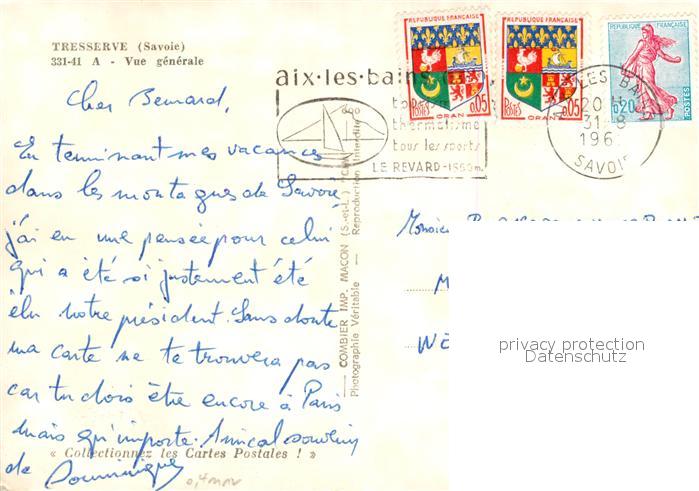 TRESSERVE (Savoie)
331-41 A - Vue générale
Cher Bernard,
En terminant mes vacances
dans les montagnes de Savoie
j'ai eu une pensée pour celui
qui a été si justement été
élu notre président. Sans doute
ma carte ne te trouvera pas
car tu dois être encore à Paris
mais qu'importe. Amical souvenir
de Dominique
« Collectionnez les Cartes Postales ! »
0,4 mm
COMBIER IMP. MACON (S.-et-L.) "CIM"
Photographie Véritable — Reproduction Interdite
aix·les·bains
thermalisme
tous les sports
LE REVARD-1550m.
REPUBLIQUE FRANÇAISE
POSTES
0,05
ORAN
REPUBLIQUE FRANÇAISE
POSTES
0,05
ORAN
REPUBLIQUE FRANÇAISE
0,20
POSTES
LES BAINS
20 H
31-8
196
SAVOIE
Monsieur
M
privacy protection
Datenschutz